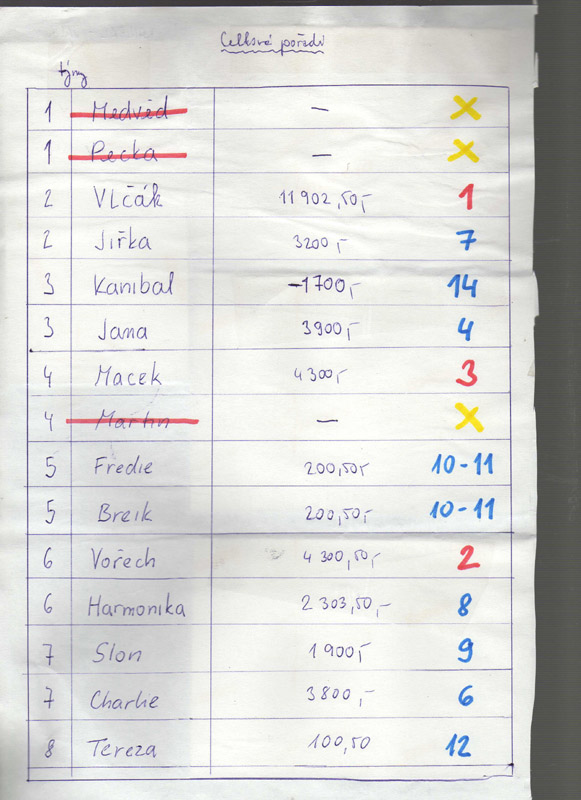 Celkové pořadí
týmy
1 Medvěd — X
1 Pecka — X
2 Vlčák 11 902,50,- 1
2 Jiřka 3200,- 7
3 Kanibal -1700,- 14
3 Jana 3900,- 4
4 Macek 4 300,- 3
4 Martin — X
5 Fredie 200,50,- 10-11
5 Breik 200,50,- 10-11
6 Vořech 4 300,50,- 2
6 Harmonika 2 303,50,- 8
7 Slon 1 900,- 9
7 Charlie 3 800,- 6
8 Tereza 100,50 12